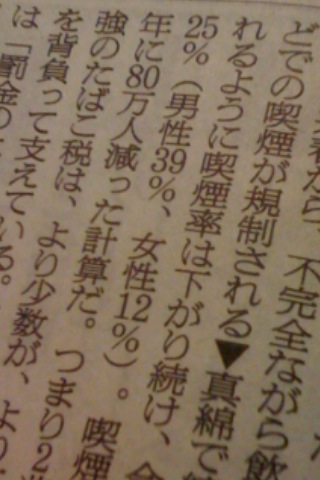 春から、不完全ながら飲
どでの喫煙が規制される▼真綿で
れるように喫煙率は下がり続け、
25％（男性39％、女性12％）。喫煙
年に80万人減った計算だ。つまり2
強のたばこ税は、より少数が、より
を背負って支えている。
は「罰金の